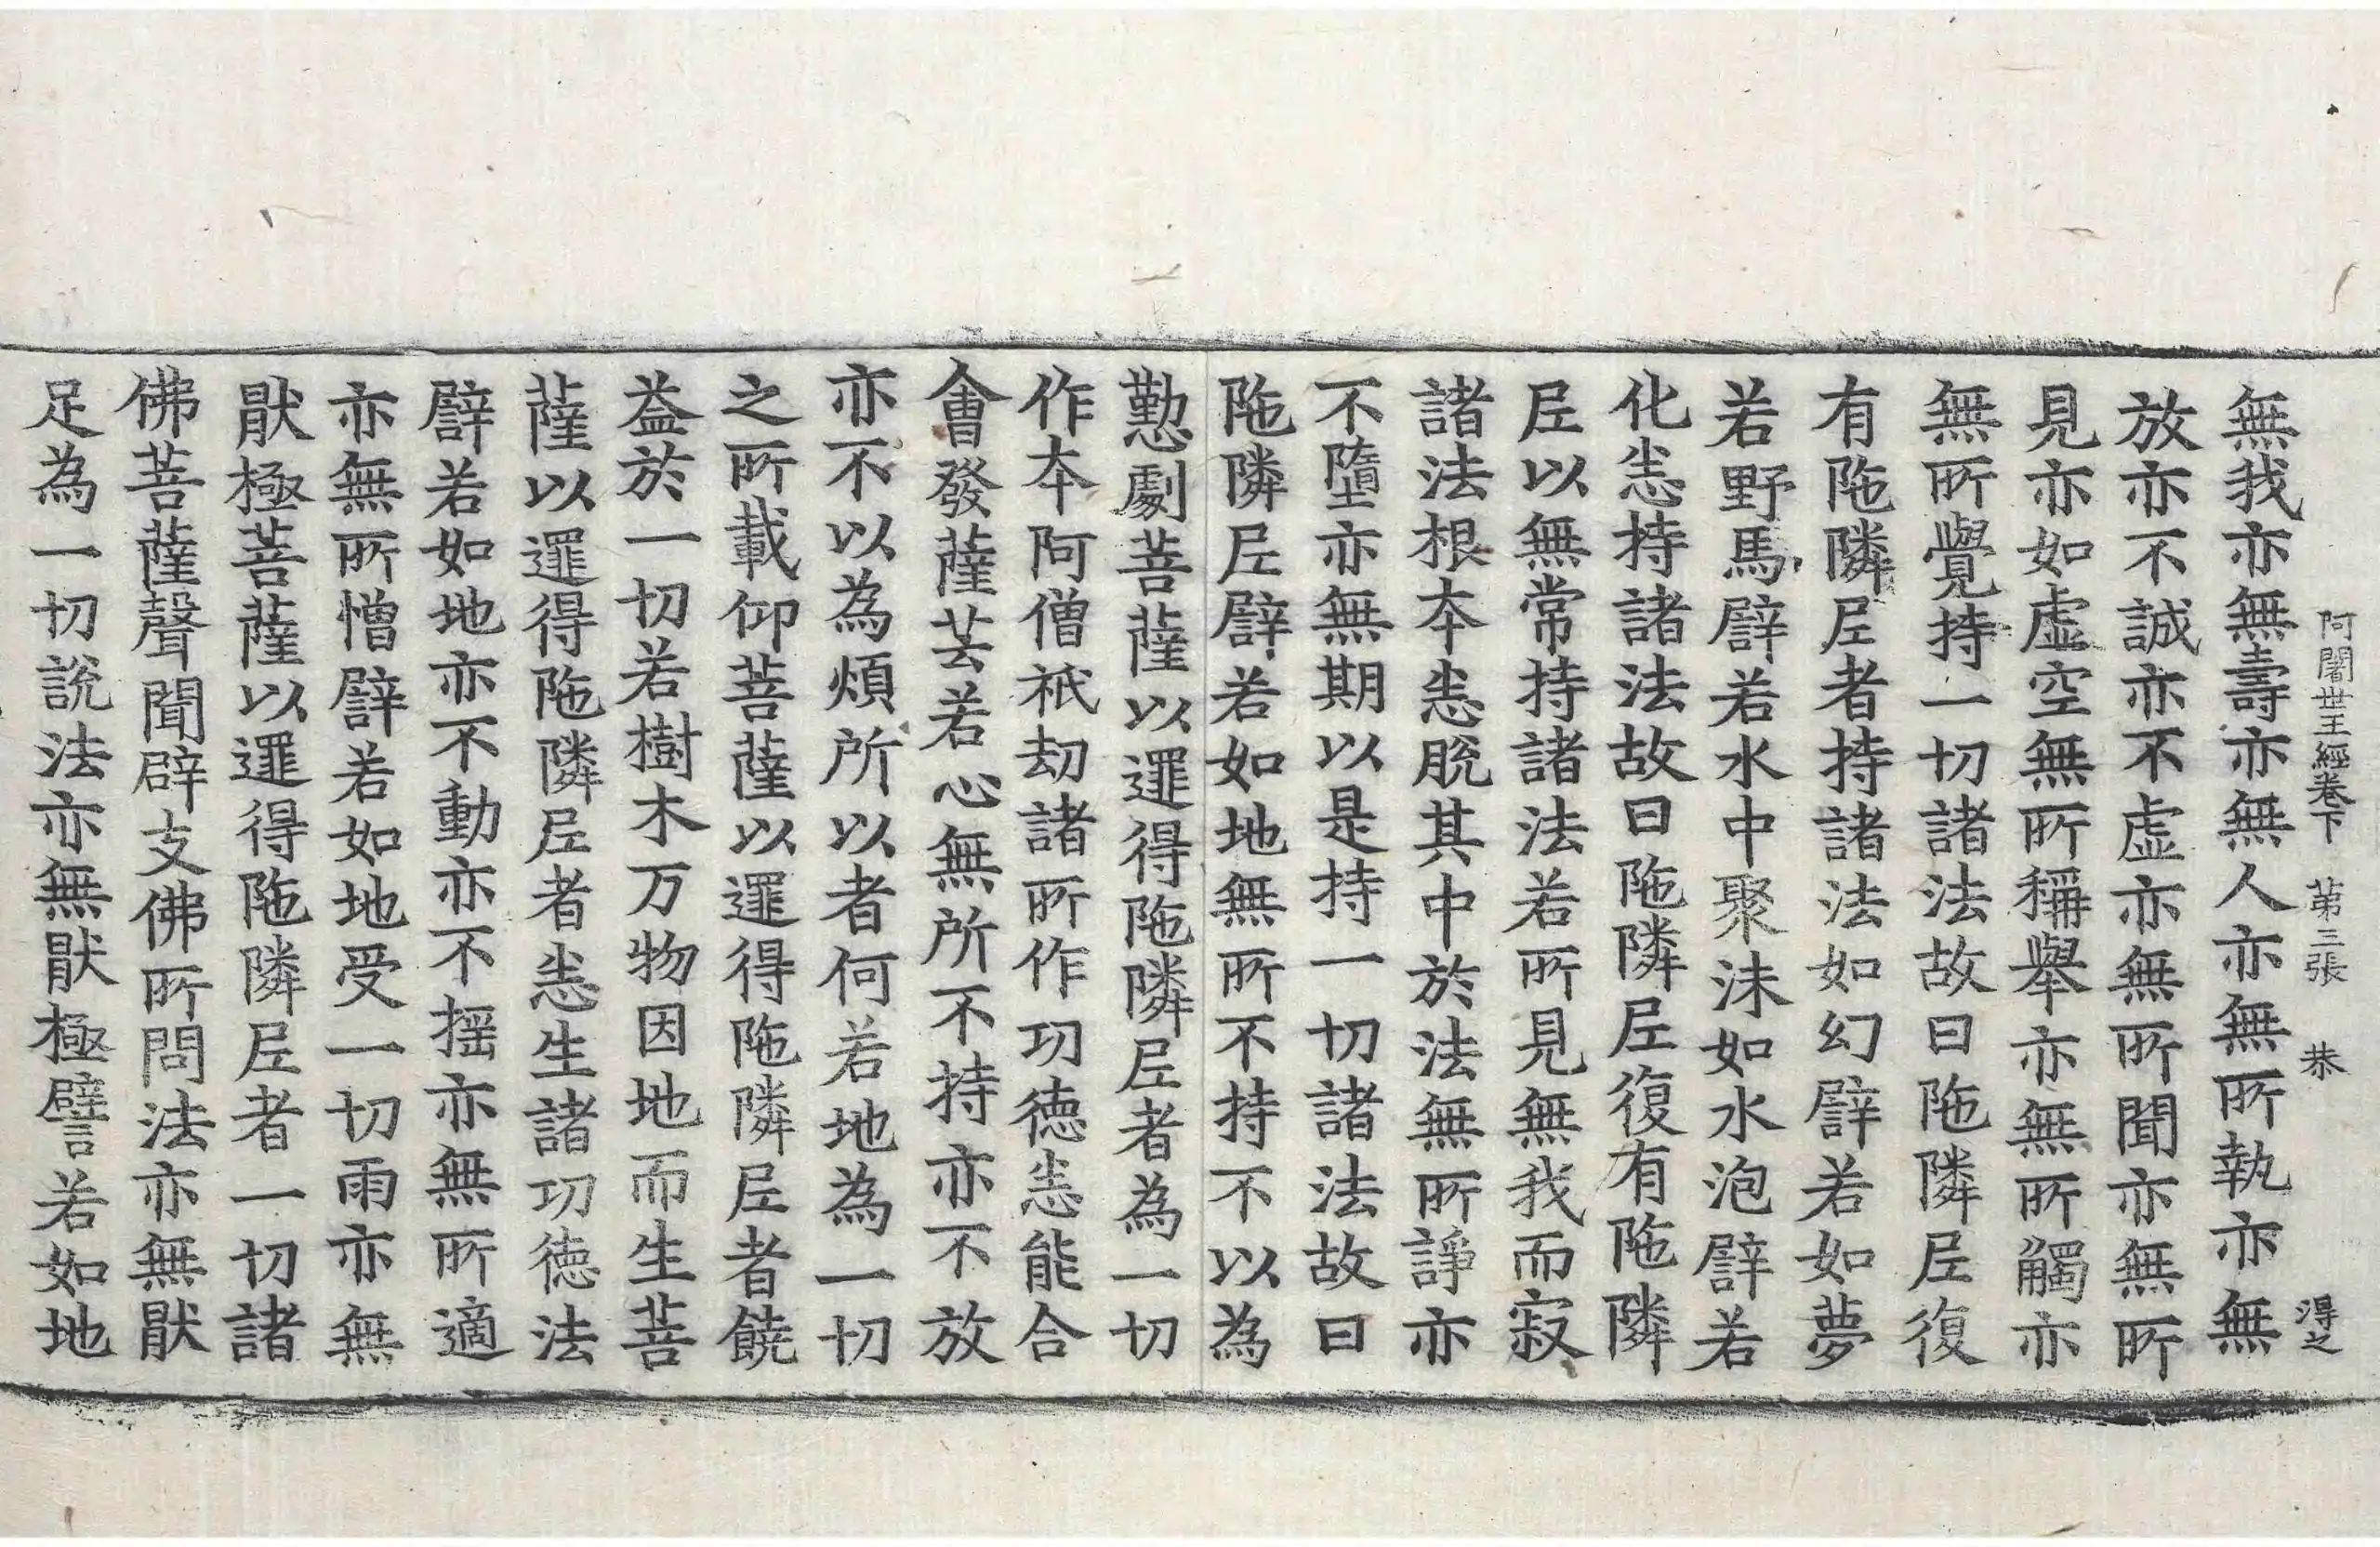 阿闍世王經卷下 苐三張 㳟 淂之
無我亦無壽亦無人亦無所執亦無
放亦不誠亦不虛亦無所聞亦無所
見亦如虛空無所稱舉亦無所觸亦
無所覺持一切諸法故曰陁隣𡰱復
有陁隣𡰱者持諸法如幻譬若如夢
若野馬譬若水中聚沫如水泡譬若
化𢘻持諸法故曰陁隣𡰱復有陁隣
𡰱以無常持諸法若所見無我而寂
諸法根夲𢘻脫其中於法無所諍亦
不墮亦無期以是持一切諸法故曰
陁隣𡰱譬若如地無所不持不以為
懃劇菩薩以邏得陁隣𡰱者為一切
作夲阿僧祇劫諸所作功徳𢘻能合
會發薩芸若心無所不持亦不放
亦不以為煩所以者何若地為一切
之所載仰菩薩以邏得陁隣𡰱者饒
益於一切若樹木万物因地而生菩
薩以邏得陁隣𡰱者𢘻生諸功徳法
譬若如地亦不動亦不揺亦無所適
亦無所憎譬若如地受一切雨亦無
猒極菩薩以邏得陁隣𡰱者一切諸
佛菩薩聲聞辟支佛所問法亦無猒
足為一切說法亦無猒極譬若如地